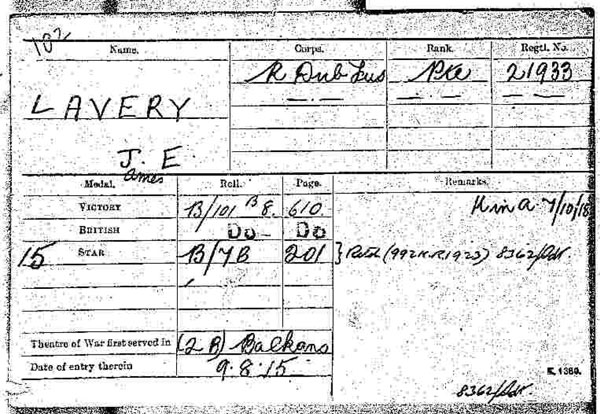 Name. Corps. Rank. Regtl. No.
R Dub Fus Pte 21933
LAVERY
J. E.
ames
Medal. Roll. Page. Remarks.
VICTORY B/101 B 8. 610. K in A 7/10/18
BRITISH Do - Do
15 STAR B/7B 201 } Retd (992 K.R 1923) 8362/Adt.
Theatre of War first served in (2B) Balkans
Date of entry therein 9.8.15
K. 1380.
8362/Adt.